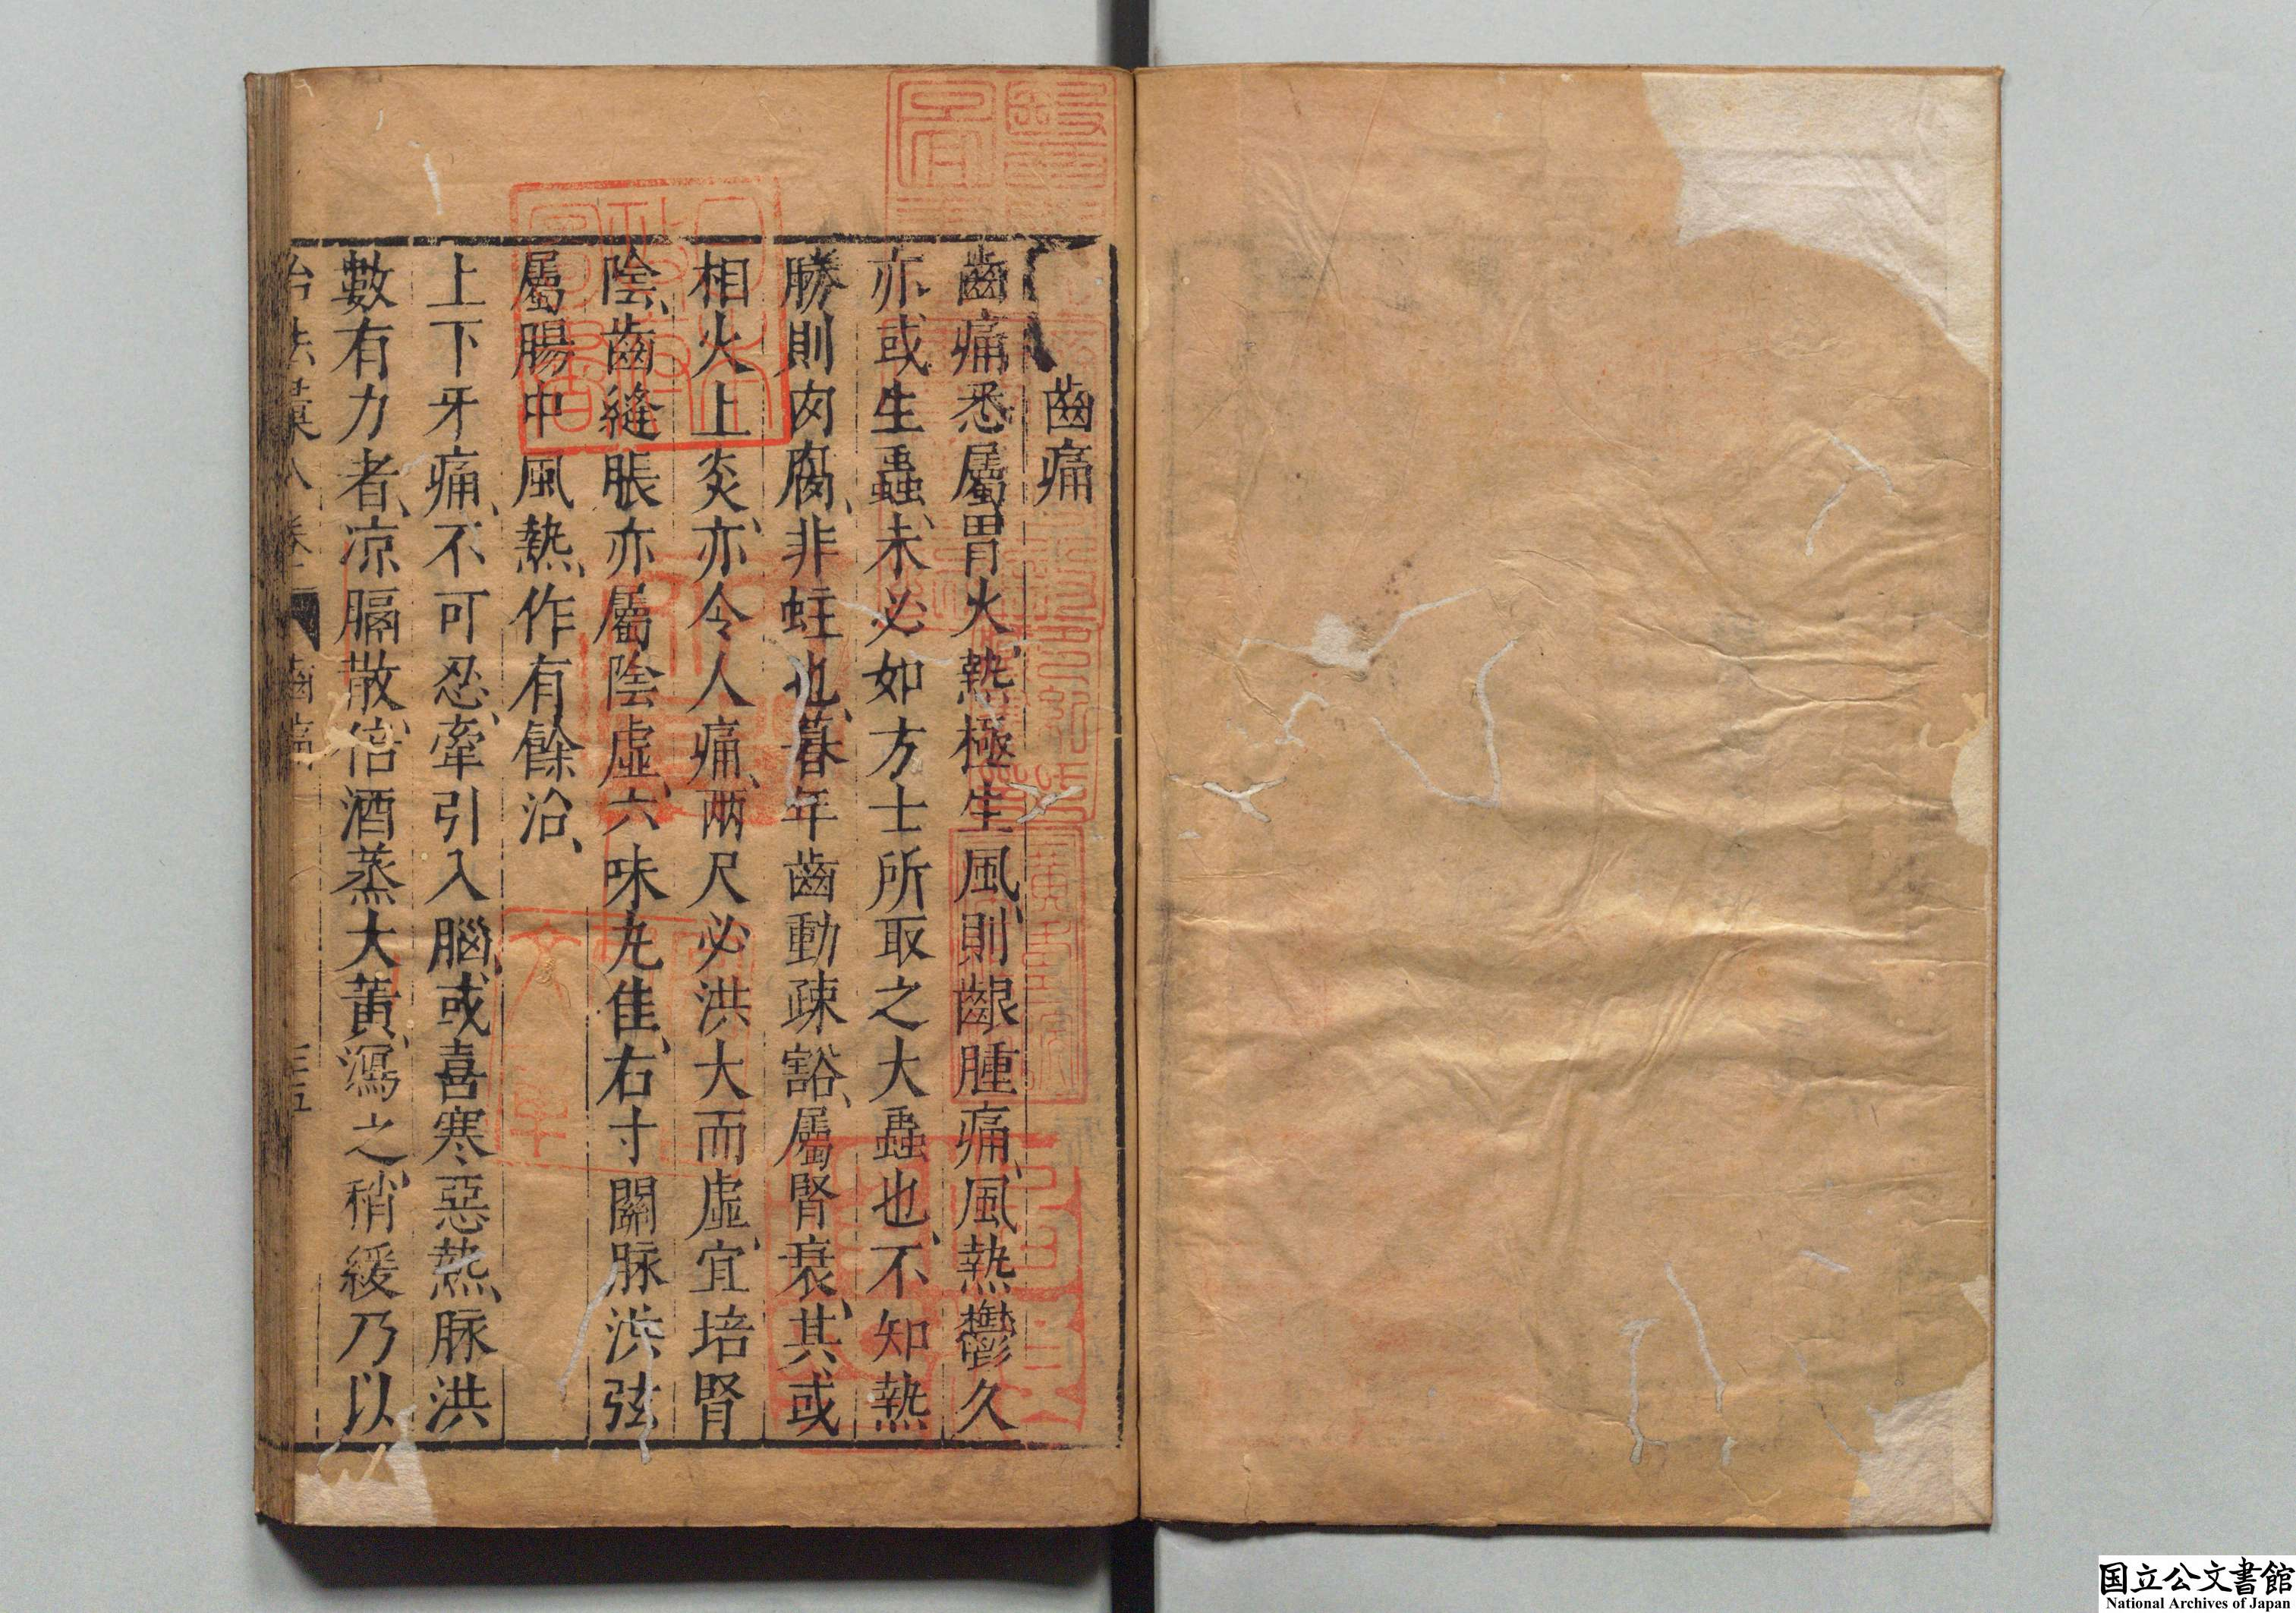 齒痛
齒痛悉屬胃火、熱極生風、則齦腫痛、風熱鬱久
亦、或生蟲、未必如方士所取之大蟲也、不知熱
勝則肉腐、非蛀也、暮年齒動疎豁、屬腎衰、其或
相火上炎、亦令人痛、兩尺必洪大而虛、宜培腎
陰、齒縫脹亦屬陰虛、六味丸佳、右寸關脉洪弦
屬腸中風熱、作有餘治、
上下牙痛、不可忍、牽引入腦、或喜寒惡熱、脉洪
數有力者、凉膈散、倍酒蒸大黃、瀉之、稍緩乃以
齒痛
国立公文書館
National Archives of Japan